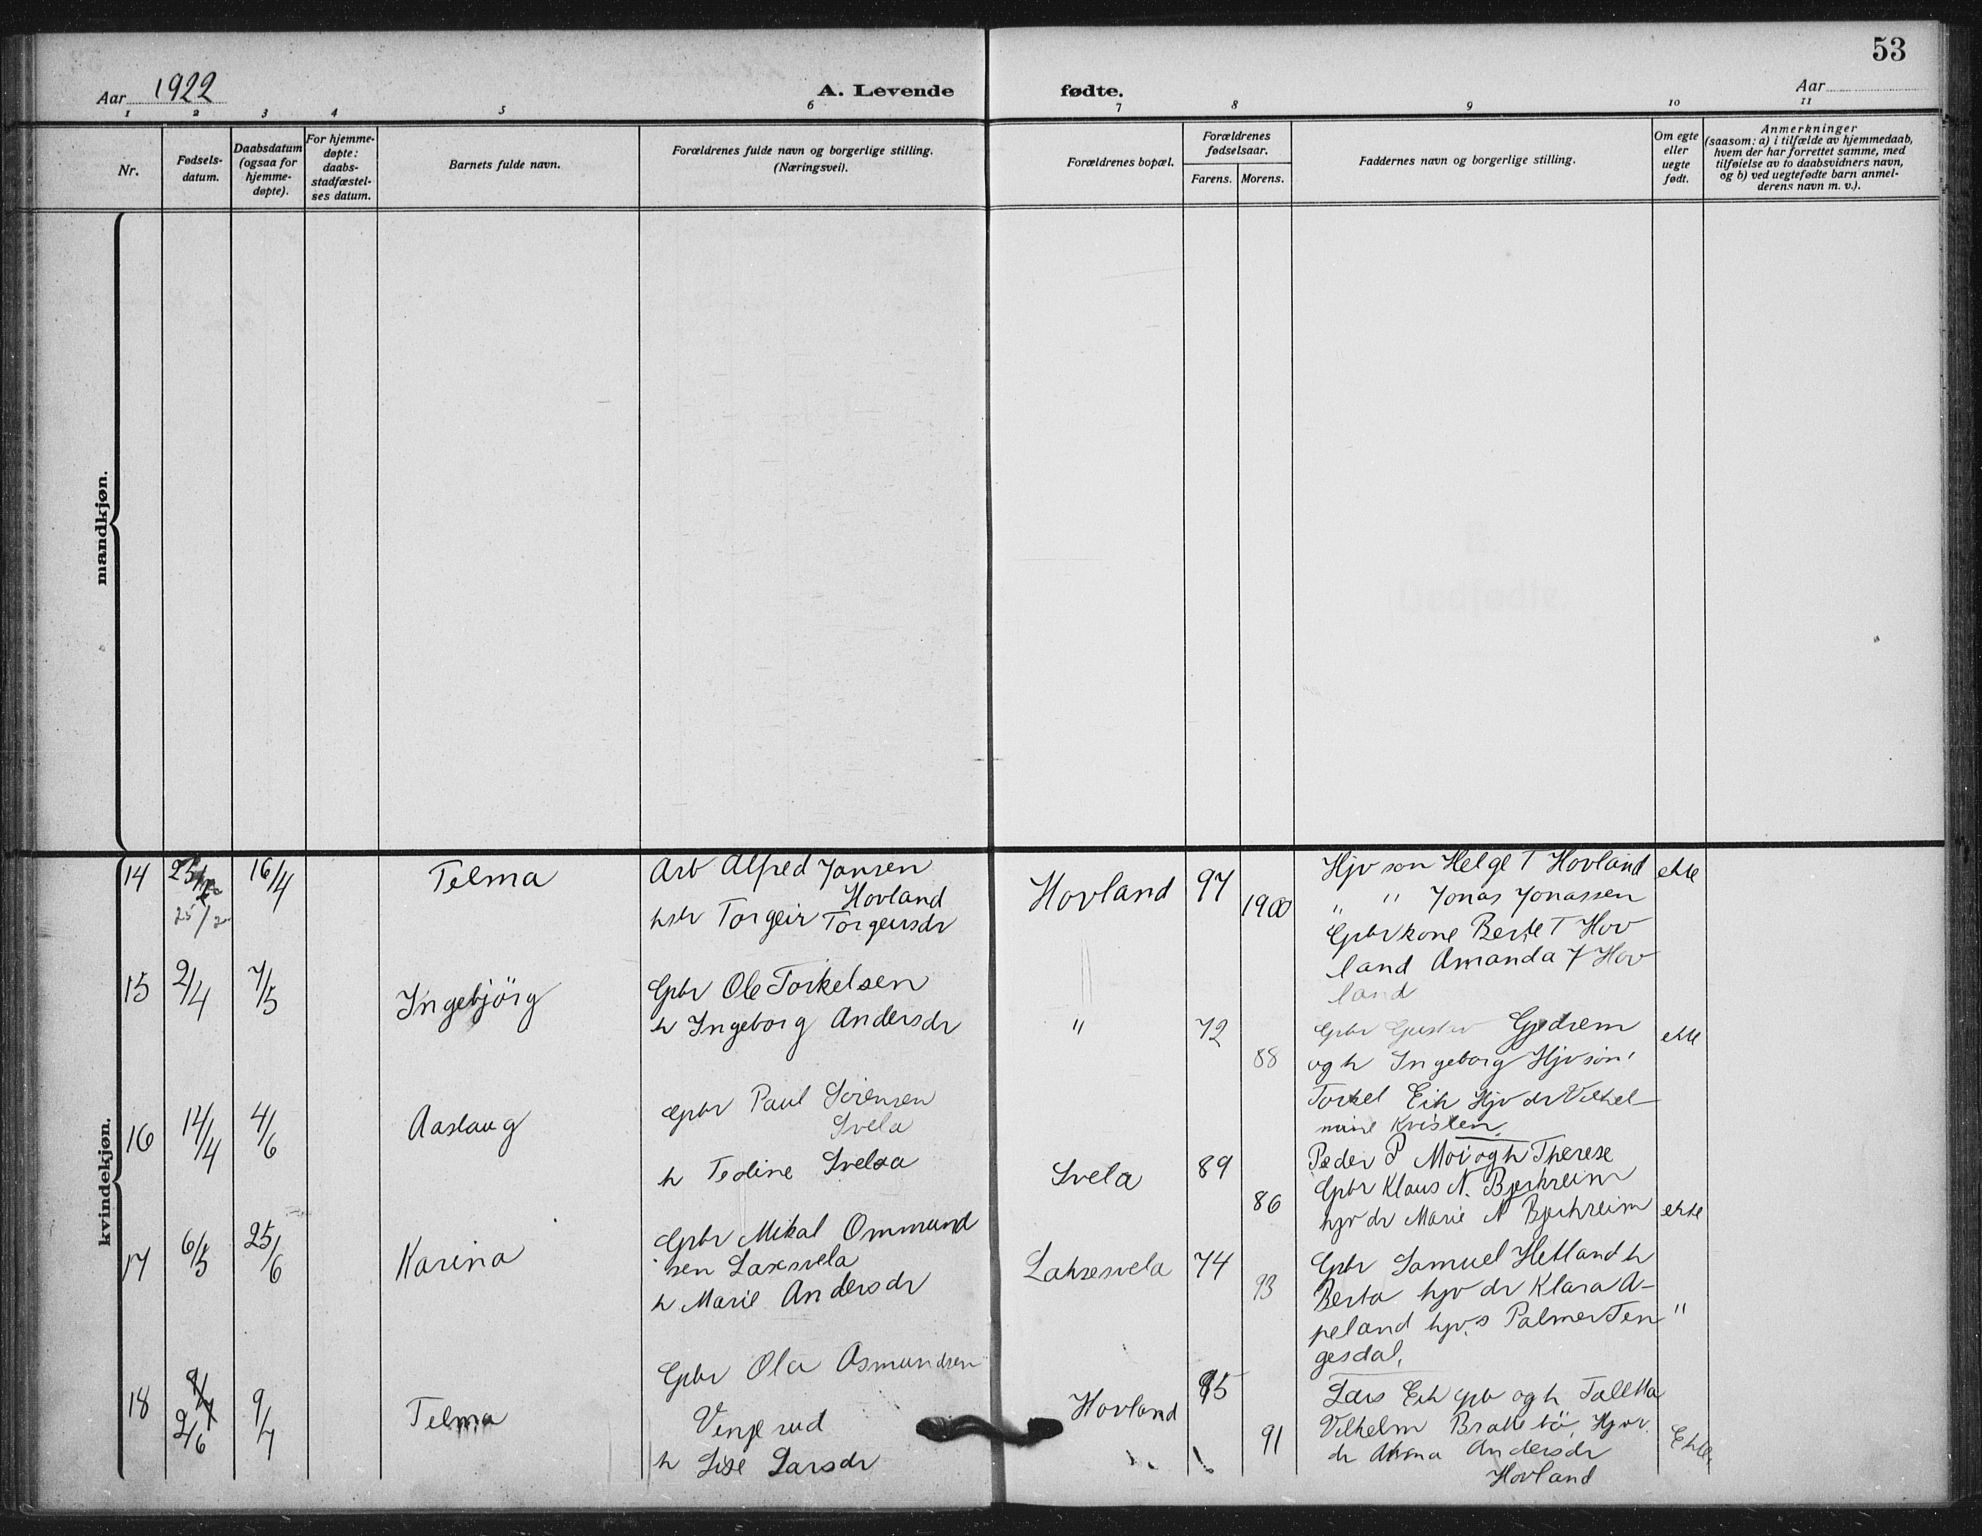 53
Aar 1922
A. Levende fødte.
Aar
1 2 3 4 5 6 7 8 9 10 11
Nr.
Fødsels-
datum.
Daabsdatum
(ogsaa for
hjemme-
døpte).
For hjemme-
døpte:
daabs-
stadfæstel-
ses datum.
Barnets fulde navn.
Forældrenes fulde navn og borgerlige stilling.
(Næringsvei).
Forældrenes bopæl.
Forældrenes
fødselsaar.
Farens. Morens.
Faddernes navn og borgerlige stilling.
Om egte
eller
uegte
født.
Anmerkninger
(saasom: a) i tilfælde av hjemmedaab,
hvem der har forrettet samme, med
tilføielse av to daabsvidners navn,
og b) ved uegtefødte barn anmel-
derens navn m. v.).
mandkjøn.
kvindekjøn.
14
25/2
16/4
Telma
Arb Alfred Jonsen
Hovland
hstr Torgeir Torgeirsdr
Hovland
97
1900
Hjv søn Helge T Hovland
" " Jonas Jonassen
Gpbr kone Berte T Hov
land Amanda T Hov
land
ekte
15
2/4
7/5
Ingebjörg
Gpbr Ole Torkelsen
h Ingeborg Andersdr
"
72
88
Gpbr Gustav Gjedrem
og h Ingeborg Hjv søn
Torkel Eik Hjv dr Vilhel-
mine Kvislen
ekte
16
14/4
4/6
Aaslaug
Gpbr Paul Sörensen
Svela
h Tedine Svelaa
Svela
89
86
Peder P Moi og h Therese
Gpbr Klaus N. Bjerkreim
hjv dr Marie N Bjerkreim
ekte
17
6/5
25/6
Karina
Gpbr Mikal Ommund
sen Laksesvela
h Marie Andersdr
Laksesvela
74
93
Gpbr Samuel Hetland h
Berta hjv dr Klara A-
peland hjv. s Palmer Ten
gesdal.
"
18
2/6
9/7
Telma
Gpbr Ola Osmundsen
Vinjerud
h Lise Larsdr
Hovland
95
91
Lars Eik gpbr og h Taletta
Vilhelm Brattebö, Hjv
dr Anna Andersdr
Hovland
Ekte.